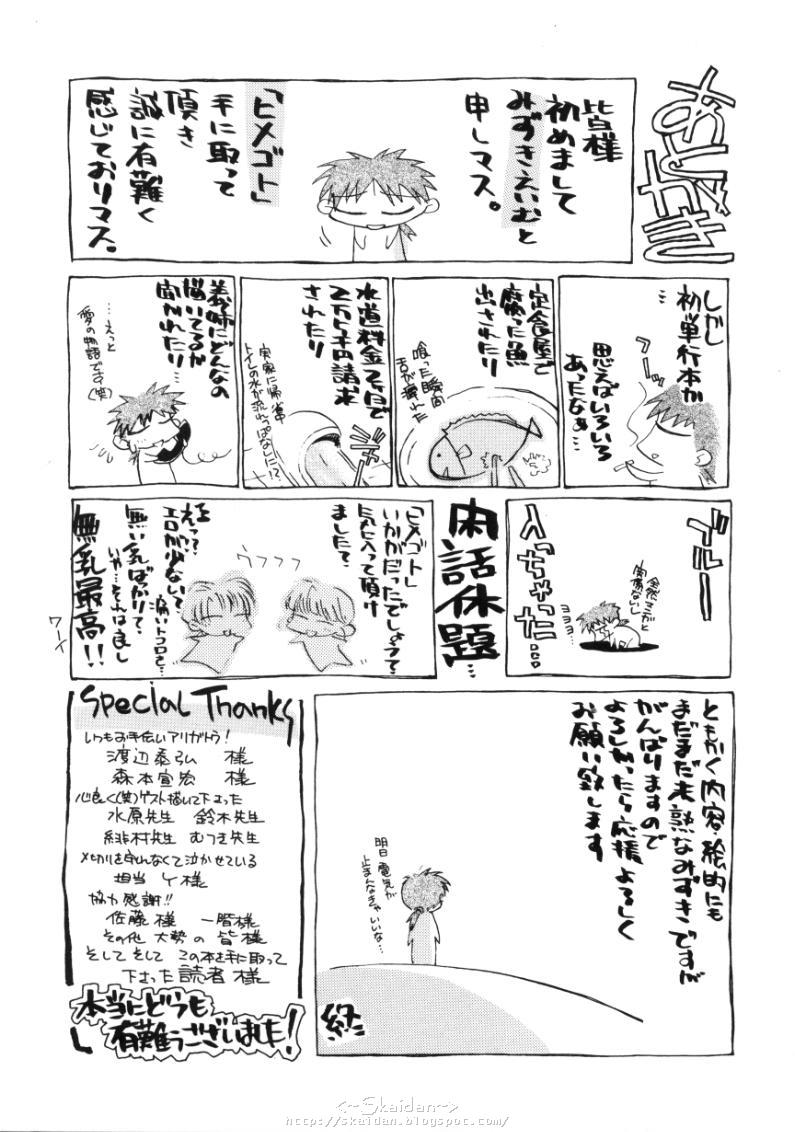 あとがき
皆様
初めまして
みずきえいむと
申しマス。
「ヒメゴト」
手に取って
頂き
誠に有難く
感じておりマス。
しかし
初単行本か
…
思えばいろいろ
あったなぁ…
フーッ
定食屋で
腐った魚
出されたり
喰った瞬間
舌が痺れた
水道料金2ヶ月で
2万5千円請求
されたり
実家に帰省中
トイレの水が流れっぱなしに!?
ジャー
義姉にどんなの
描いてるか
聞かれたり…
…えっと
愛の物語です(笑)
ブルー
入っちゃった…
全然マンガと
関係ないし
ヨヨヨ…
閑話休題
「ヒメゴト」
いかがだったでしょうか?
気に入って頂け
ましたで…
ウフフフ
え?
エロが少ない?
痛いトコロを…
無い乳ばっかりで?
いや…それは良し
無乳最高!!
ワーイ
ともかく内容・絵的にも
まだまだ未熟なみずきですが
がんばりますので
よろしかったら応援よろしく
お願い致します
明日 電気が
止まんなきゃ いいな…
終
Special Thanks
いつもお手伝いアリガトう!
渡辺泰弘 様
森本宣宏 様
心良く(笑)ゲスト描いて下さった
水原先生 鈴木先生
緋村先生 むつき先生
〆切りを守れなくて泣かせている
担当 Y様
協力感謝!!
佐藤様 一階様
その他 大勢の 皆様
そして そして この本を手に取って
下さった 読者 様
本当にどうも
有難うございました!
<~Skaidan~>
http://skaidan.blogspot.com/